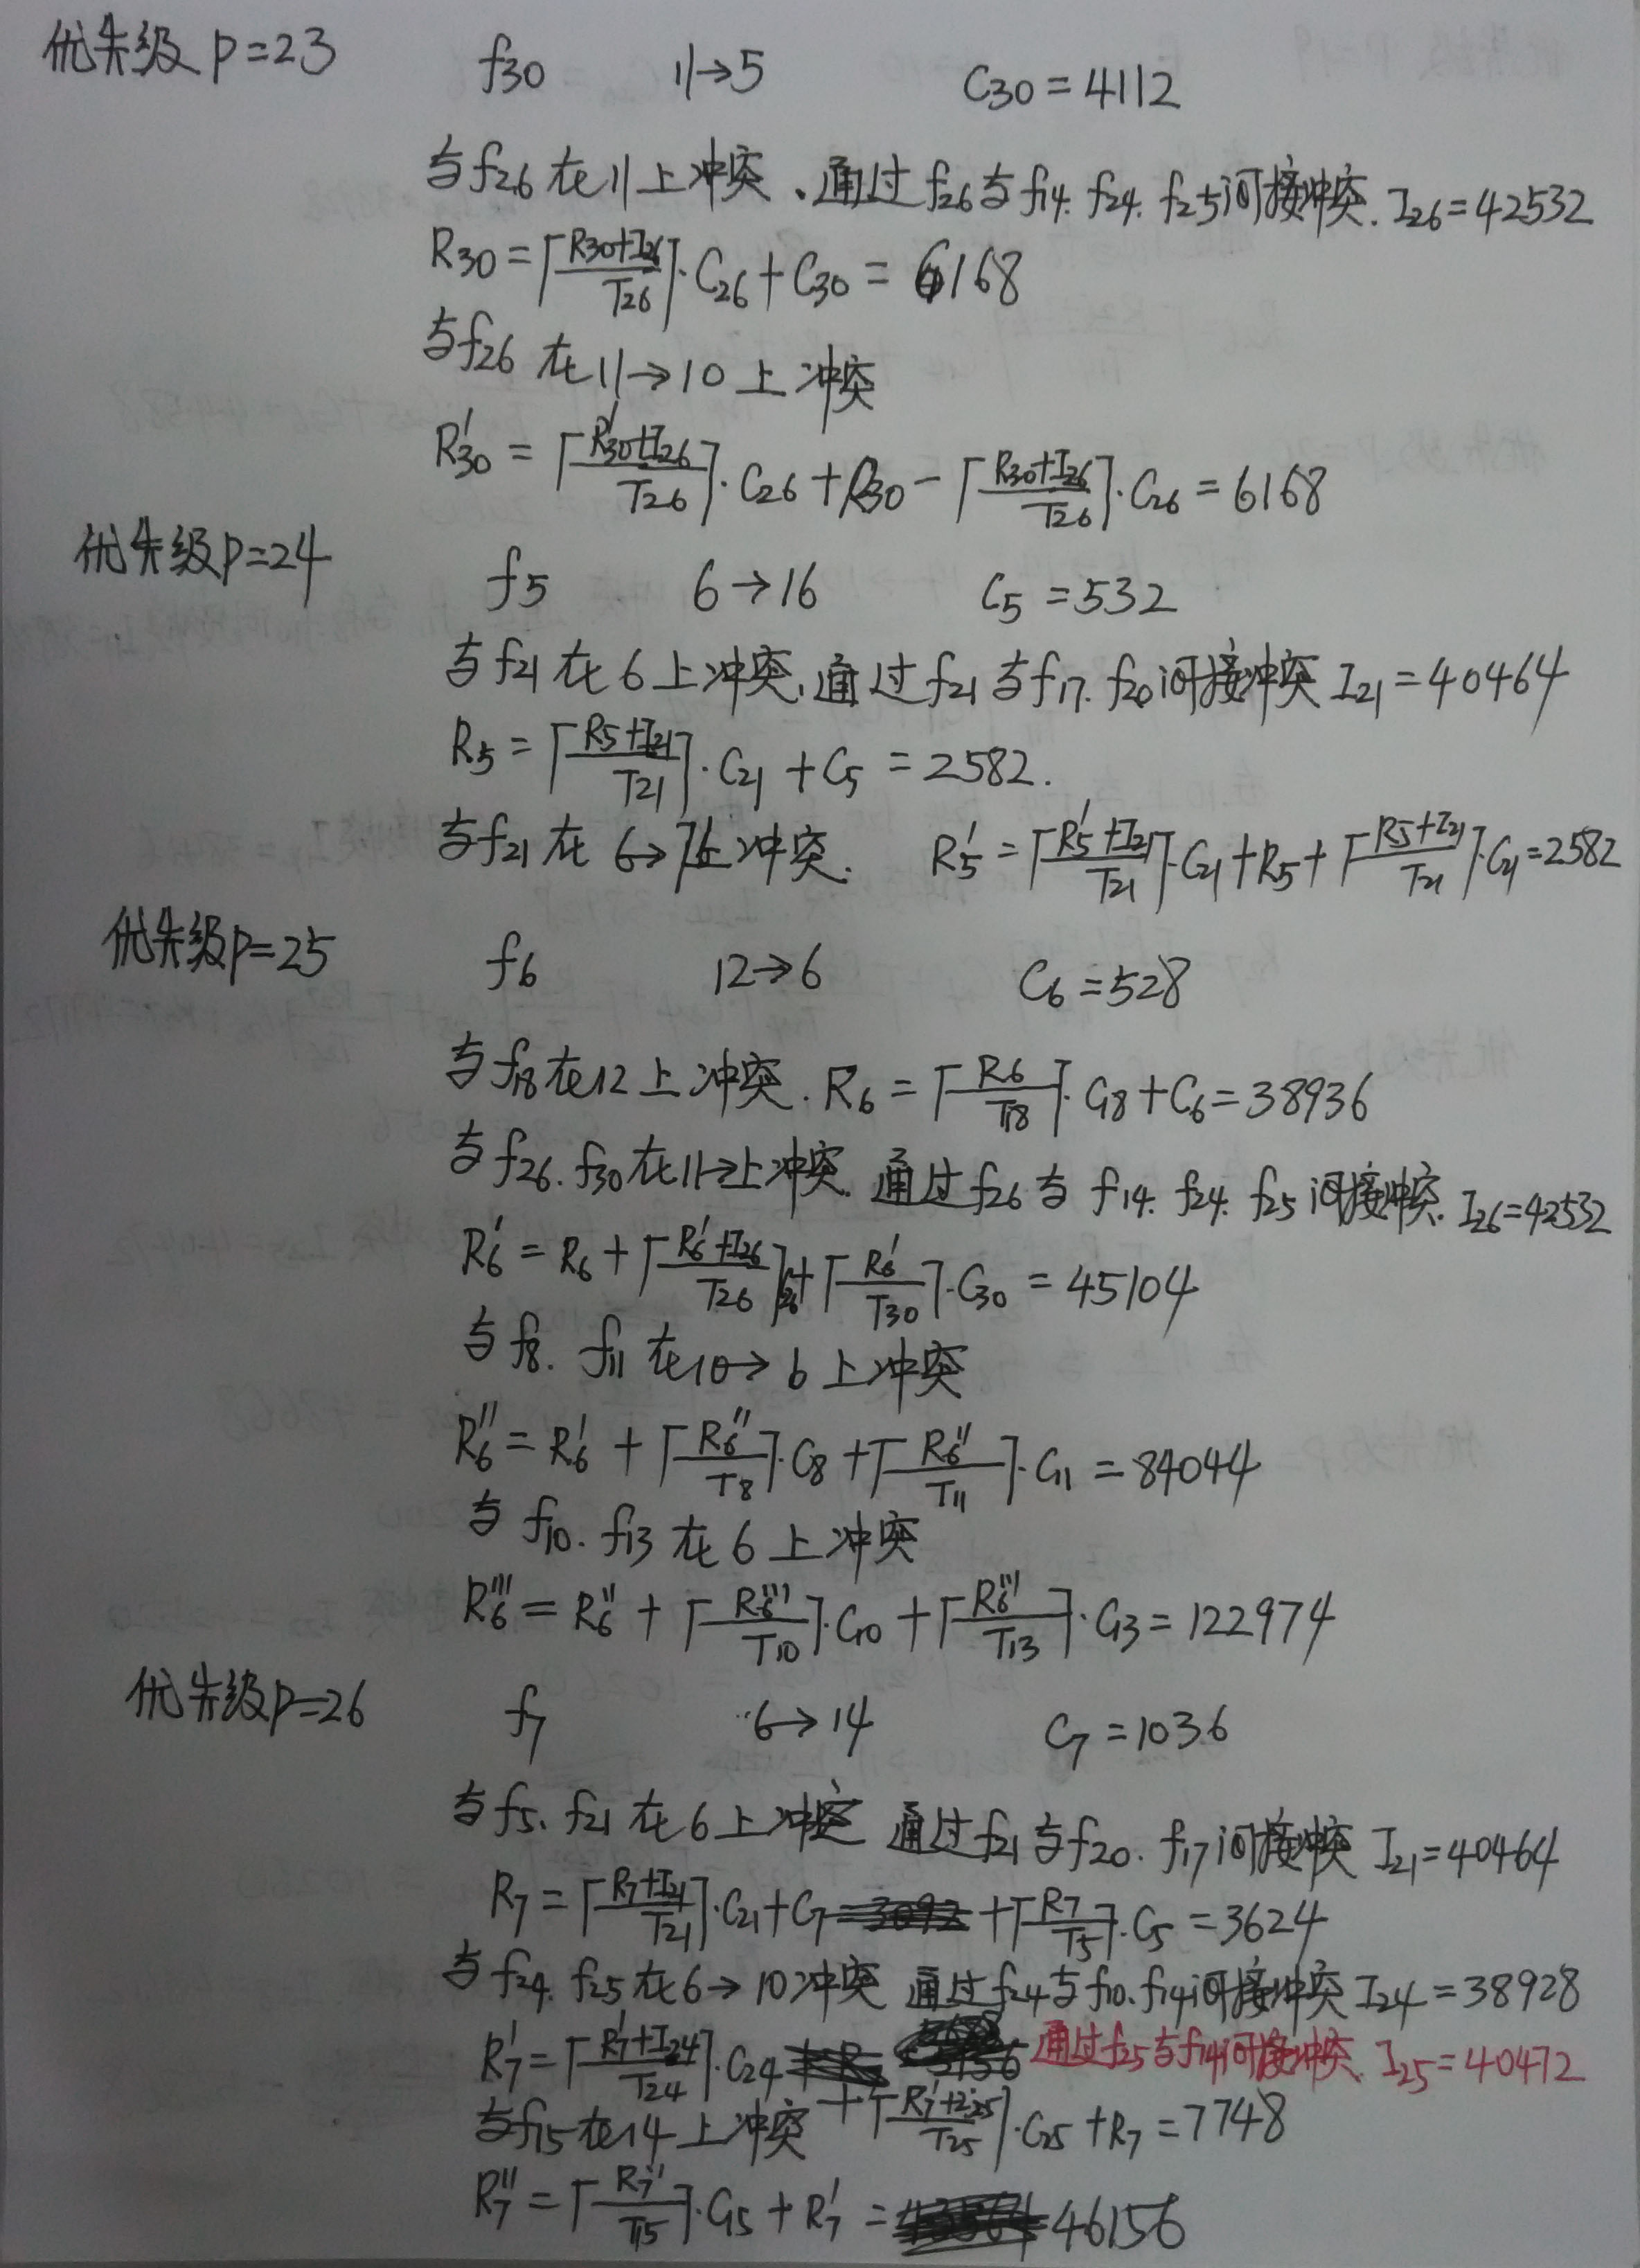 优先级 P=23 f30 11→5 C30=4112
与f26在11上冲突、通过f26与f14. f24. f25间接冲突. I26=42532
R30=⌈(R30+I26)/T26⌉·C26+C30=6168
与f26 在11→10上冲突
R30'=⌈(R30'+I26)/T26⌉·C26+R30-⌈(R30+I26)/T26⌉·C26=6168
优先级P=24 f5 6→16 C5=532
与f21在6上冲突,通过f21与f17. f20间接冲突 I21=40464
R5=⌈(R5+I21)/T21⌉·C21+C5=2582.
与f21在6→7上冲突. R5'=⌈(R5'+I21)/T21⌉·C21+R5+⌈(R5+I21)/T21⌉·C21=2582
优先级P=25 f6 12→6 C6=528
与f18在12上冲突. R6=⌈R6/T18⌉·C18+C6=38936
与f26. f30在11→上冲突. 通过f26与f14. f24. f25间接冲突. I26=42532
R6'=R6+⌈(R6'+I26)/T26⌉C26+⌈R6'/T30⌉·C30=45104
与f8. f11在10→6上冲突
R6''=R6'+⌈R6''/T8⌉·C8+⌈R6''/T11⌉·C11=84044
与f10. f13在6上冲突
R6'''=R6''+⌈R6'''/T10⌉·C10+⌈R6'''/T13⌉·C13=122974
优先级P=26 f7 6→14 C7=1036
与f5. f21在6上冲突 通过f21与f20. f17间接冲突 I21=40464
R7=⌈(R7+I21)/T21⌉·C21+C7+⌈R7/T5⌉·C5=3624
与f24. f25在6→10冲突 通过f24与f10. f14间接冲突 I24=38928
R7'=⌈(R7'+I24)/T24⌉·C24 通过f25与f14间接冲突. I25=40472
+⌈(R7'+I25)/T25⌉·C25+R7=7748
与f15在14上冲突
R7''=⌈R7''/T15⌉·C15+R7'=46156